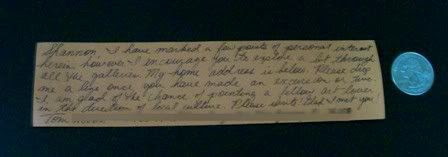 Shannon I have marked a few points of personal interest
herein however I encourage you to explore a bit through
all the galleries. My home address is below. Please drop
me a line once you have made an excursion or two.
I am glad of the chance of pointing a fellow art lover
in the direction of local culture. Please write. Glad I met you
Tom